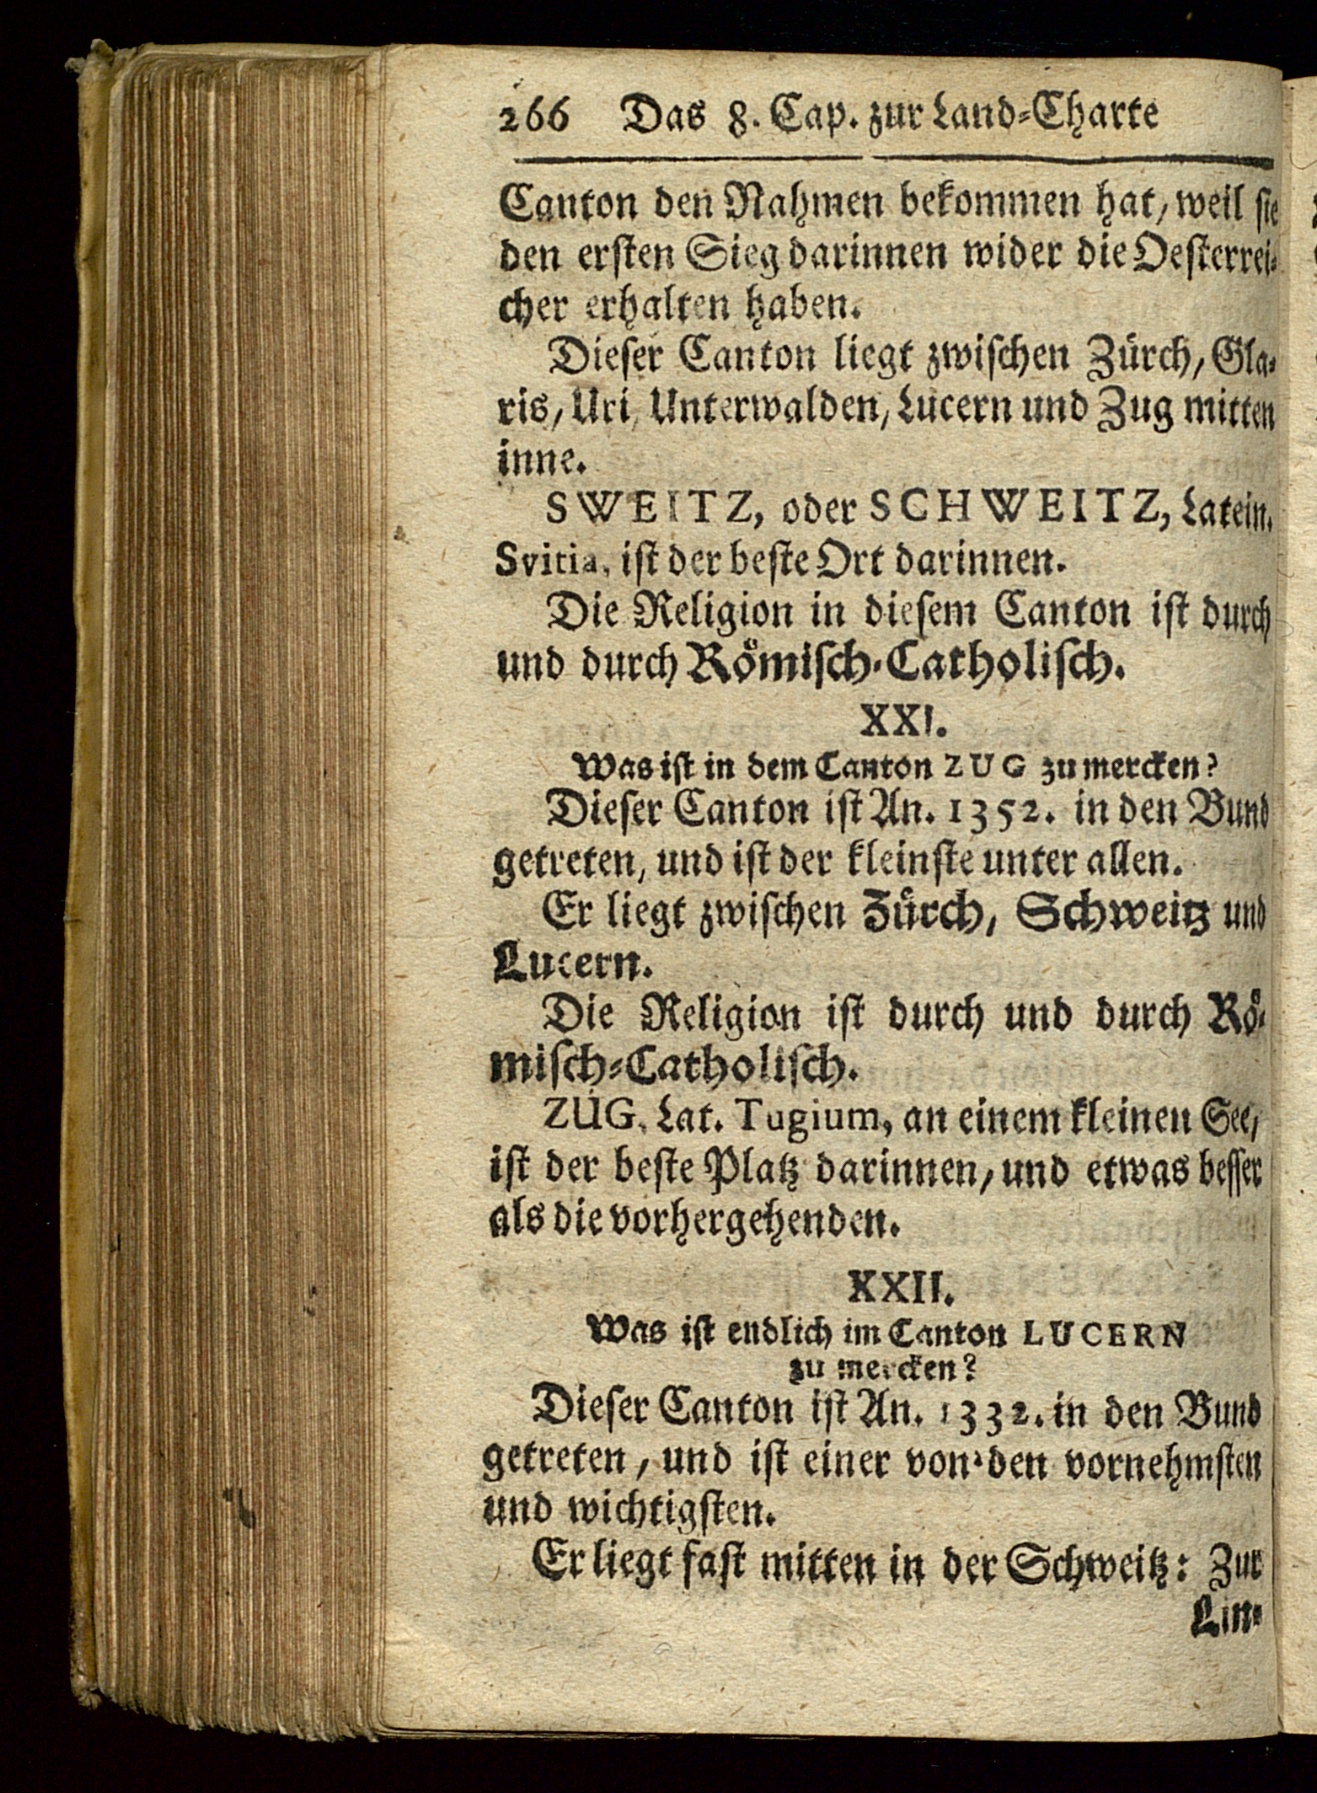 266 Das 8. Cap. zur Land-Charte
Canton den Nahmen bekommen hat, weil sie
den ersten Sieg darinnen wider die Oesterrei-
cher erhalten haben.
Dieser Canton liegt zwischen Zürch, Gla-
ris, Uri, Unterwalden, Lucern und Zug mitten
inne.
SWEITZ, oder SCHWEITZ, Latein.
Svitia, ist der beste Ort darinnen.
Die Religion in diesem Canton ist durch
und durch Römisch-Catholisch.
XXI.
Was ist in dem Canton ZUG zu mercken?
Dieser Canton ist An. 1352. in den Bund
getreten, und ist der kleinste unter allen.
Er liegt zwischen Zürch, Schweitz und
Lucern.
Die Religion ist durch und durch Rö-
misch-Catholisch.
ZUG, Lat. Tugium, an einem kleinen See,
ist der beste Platz darinnen, und etwas besser
als die vorhergehenden.
XXII.
Was ist endlich im Canton LUCERN
zu mercken?
Dieser Canton ist An. 1332. in den Bund
getreten, und ist einer von den vornehmsten
und wichtigsten.
Er liegt fast mitten in der Schweitz: Zur
Lin-